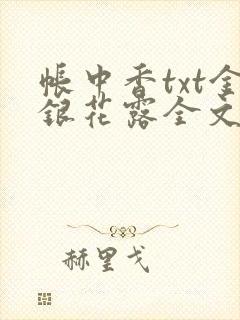 帐中香txt金
银花露全文
赫里戈